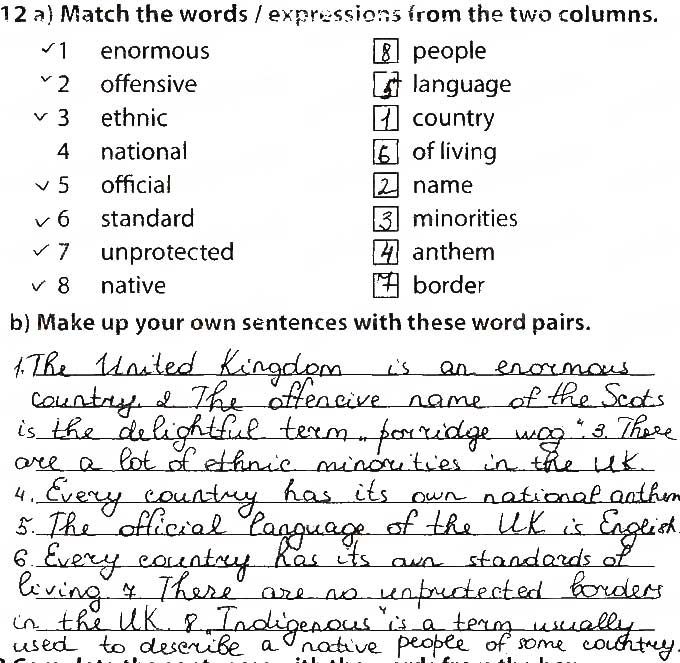 12 a) Match the words / expressions from the two columns.
✓ 1 enormous 8 people
✓ 2 offensive 5 language
✓ 3 ethnic 1 country
4 national 6 of living
✓ 5 official 2 name
✓ 6 standard 3 minorities
✓ 7 unprotected 4 anthem
✓ 8 native 7 border
b) Make up your own sentences with these word pairs.
1. The United Kingdom is an enormous
country. 2 The offencive name of the Scots
is the delightful term „porridge wog“. 3. There
are a lot of ethnic minorities in the UK.
4. Every country has its own national anthem
5. The official language of the UK is English.
6. Every country has its own standards of
living 7. There are no unprotected borders
in the UK. 8 „Indigenous“ is a term usually
used to describe a native people of some country.